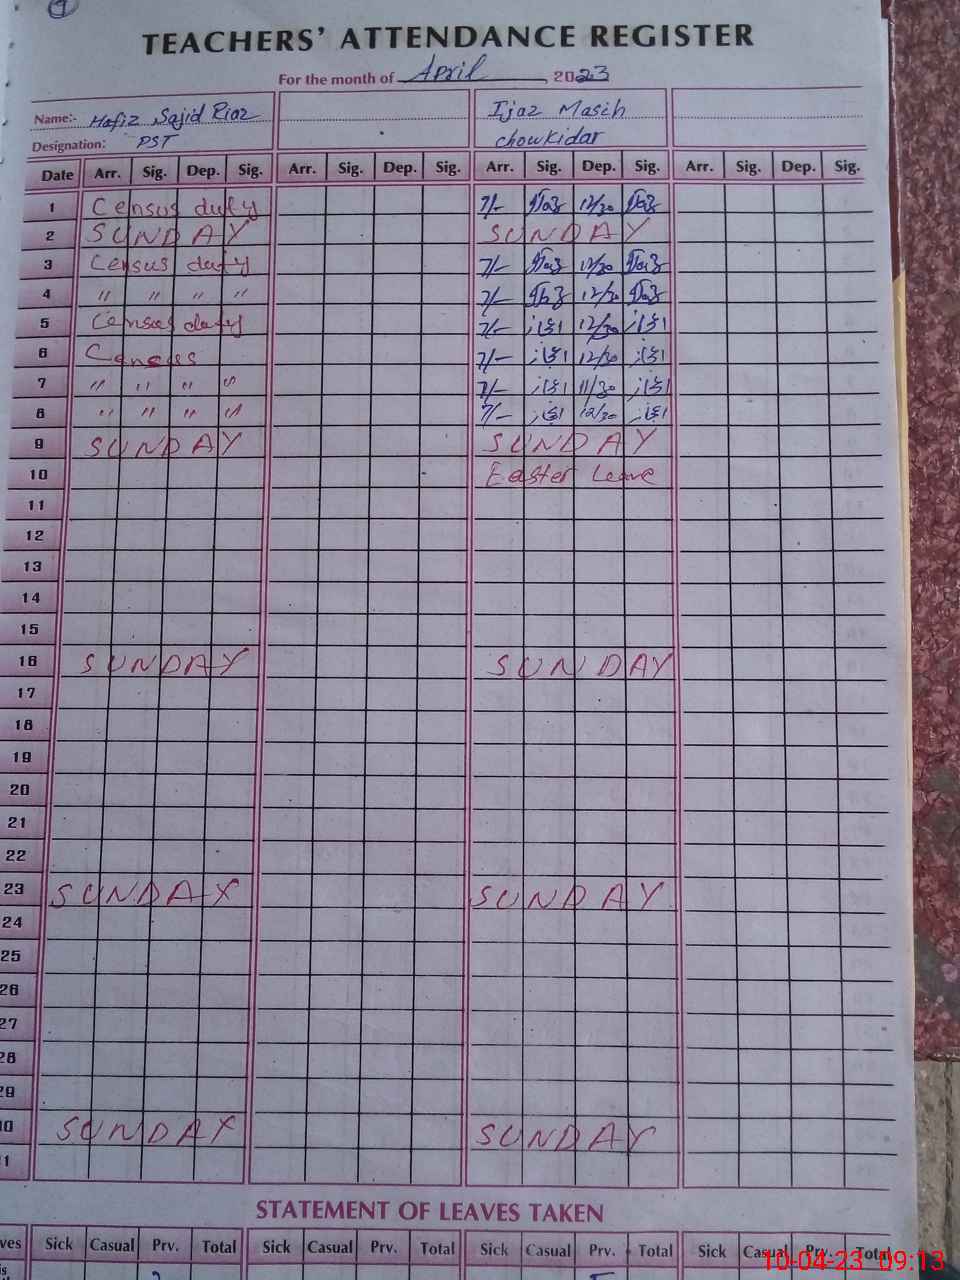 1
TEACHERS' ATTENDANCE REGISTER
For the month of April, 2023
Name:- Hafiz Sajid Riaz Ijaz Masih
Designation: PST chowkidar
Date Arr. Sig. Dep. Sig. Arr. Sig. Dep. Sig. Arr. Sig. Dep. Sig. Arr. Sig. Dep. Sig.
1 Census duty 7/- Ijaz 12/30 Ijaz
2 SUNDAY SUNDAY
3 Census duty 7/- Ijaz 12/30 Ijaz
4 " " " " 7/- Ijaz 12/30 Ijaz
5 Census duty 7/- اعجاز 12/30 اعجاز
6 Census 7/- اعجاز 12/30 اعجاز
7 " " " " 7/- اعجاز 11/30 اعجاز
8 " " " " 7/- اعجاز 12/30 اعجاز
9 SUNDAY SUNDAY
10 Easter Leave
11
12
13
14
15
16 SUNDAY SUNDAY
17
18
19
20
21
22
23 SUNDAY SUNDAY
24
25
26
27
28
29
30 SUNDAY SUNDAY
31
STATEMENT OF LEAVES TAKEN
ves Sick Casual Prv. Total Sick Casual Prv. Total Sick Casual Prv. Total Sick Casual Prv. Total
10-04-23 09:13